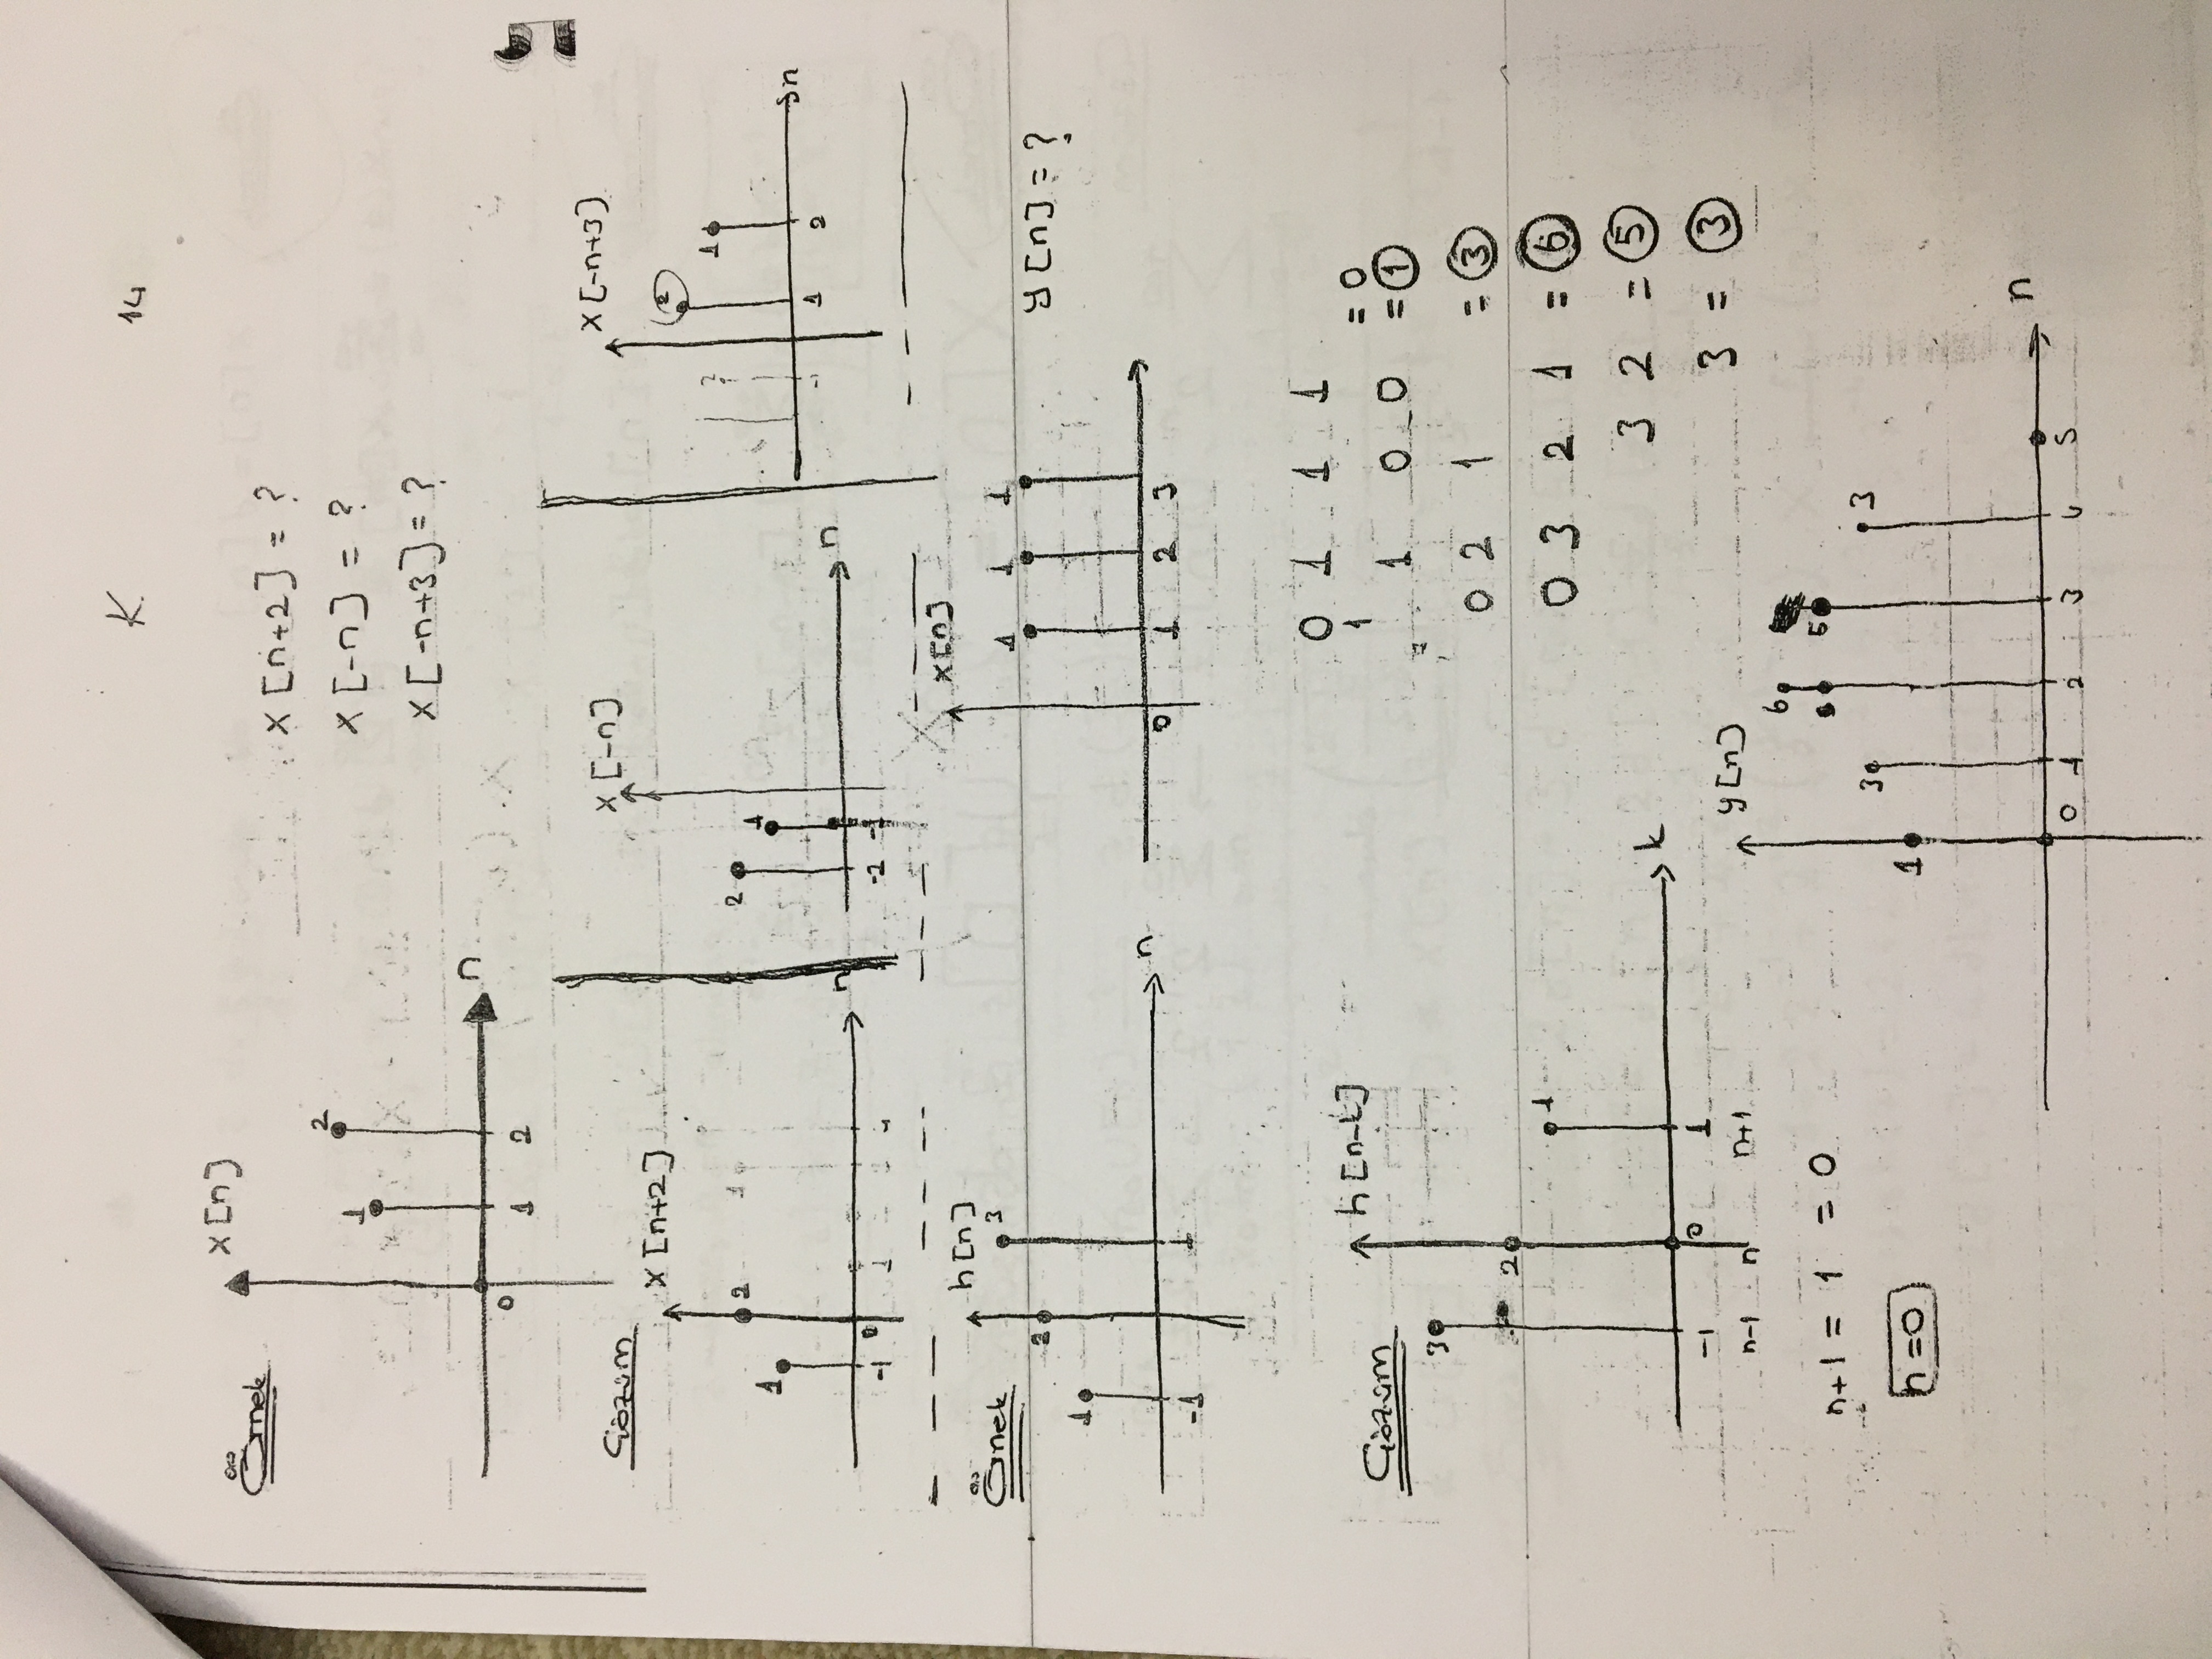 K. 14
Örnek
x[n]
x[n+2] = ?
x[-n] = ?
x[-n+3] = ?
1 2
n
0 1 2
Çözüm
x[n+2]
1 2
n
-1 0
x[-n]
2 1
n
-2 -1
x[-n+3]
2 1
n
1 2
Örnek
h[n]
1 2 3
n
-1 1
x[n]
1 1 1
0 1 2 3
y[n] = ?
Çözüm
h[n-k]
3 2 1
k
-1 0 1
n-1 n n+1
n+1 = 1 = 0
n=0
0 1 1 1
1 = 0
1 0 0 = 1
0 2 1 = 3
0 3 2 1 = 6
3 2 = 5
3 = 3
y[n]
1 3 6 5 3
n
0 1 2 3 4 5